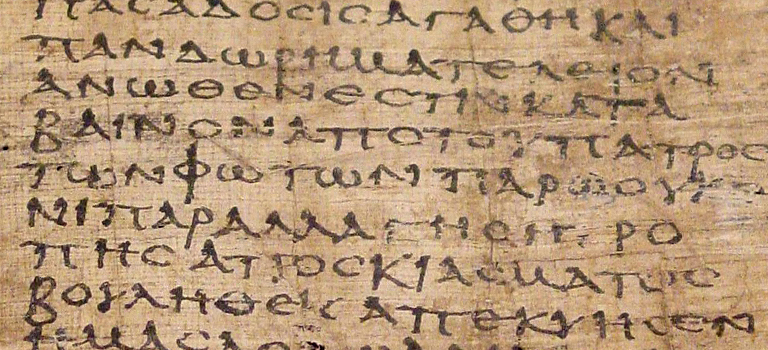 ΠΑCΑΔΟCΙCΑΓΑΘΗΚΑΙ
ΠΑΝΔΩΡΗΜΑΤΕΛΕΙΟΝ
ΑΝΩΘΕΝΕCΤΙΝΚΑΤΑ
ΒΑΙΝΟΝΑΠΟΤΟΥΠΑΤΡΟC
ΤΩΝΦΩΤΩΝΠΑΡΩΟΥΚΕ
ΝΙΠΑΡΑΛΛΑΓΗCΗΤΡΟ
ΠΗCΑΠΟCΚΙΑCΜΑΤΟC
ΒΟΥΛΗΘΕΙCΑΠΕΚΥΗCΕΝ
ΗΜΑC